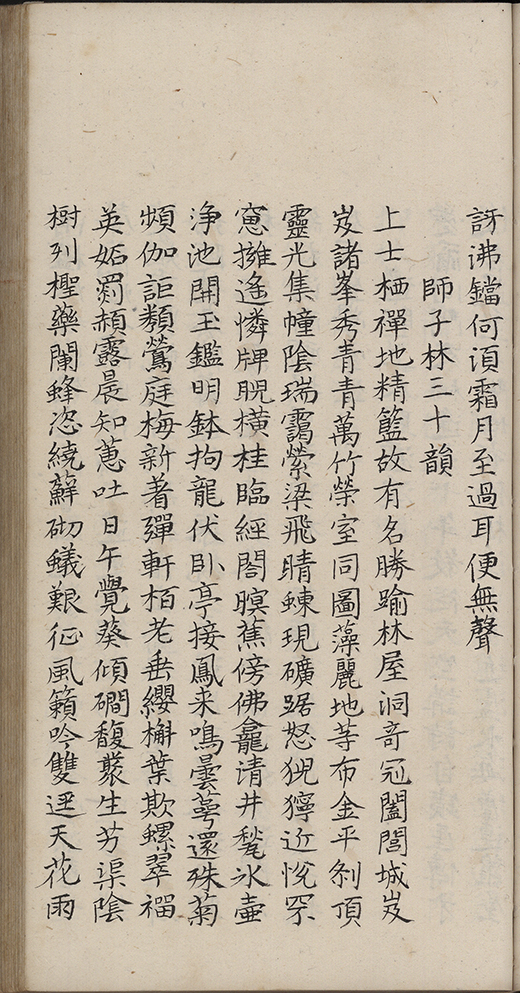 訝沸鐺何湏霜月至過耳便無聲
師子林三十韻
上士栖禪地精籃故有名勝踰林屋洞奇冠闔閭城岌
岌諸峯秀青青萬竹榮室同圖藻麗地等布金平刹頂
靈光集幢陰瑞靄縈梁飛晴蝀現礦踞怒猊獰近悅罘
窓擁遙憐牌睨橫桂臨經閤暝蕉傍佛龕清井甃氷壺
浄池開玉鑑明鉢拘龍伏卧亭接鳳来鳴曇蕚還殊菊
頻伽詎類鶯庭梅新著彈軒栢老垂纓槲葉欺螺翠榴
英妬罽赬露晨知蕙吐日午覺葵傾磵馥褧生芳渠陰
樹列檉藥闌蜂恣繞蘚砌蟻艱征風籟吟雙遝天花雨